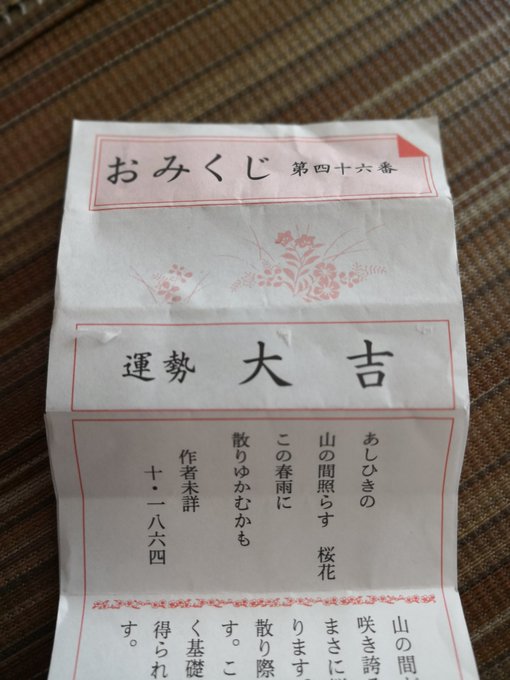 おみくじ 第四十六番
運勢 大吉
あしひきの
山の間照らす 桜花
この春雨に
散りゆかむかも
作者未詳
十・一八六四
山の間
咲き誇
まさに
ります。
散り際
す。こ
く基礎
得られ
す。